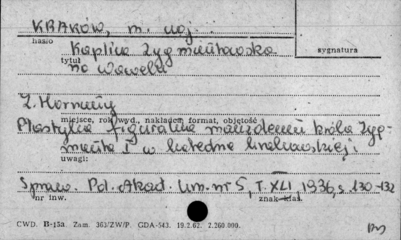 KRAKÓW, m. woj.
hasło
Kaplica Zygmuntowska
sygnatura
tytuł
na Wawelu
Z. Hornung
miejsce, rok wyd., nakładem format, objętość
Plastyka figuralna mauzoleum króla Zyg-
munta I w katedrze krakowskiej.
uwagi:
Spraw. Pol. Akad. Um. nr 5, T. XLI, 1936, s. 130-132
nr inw.
znak klas.
CWD. B-15a. Zam. 363/ZW/P. GDA-543. 19.2.62. 2.260.000.